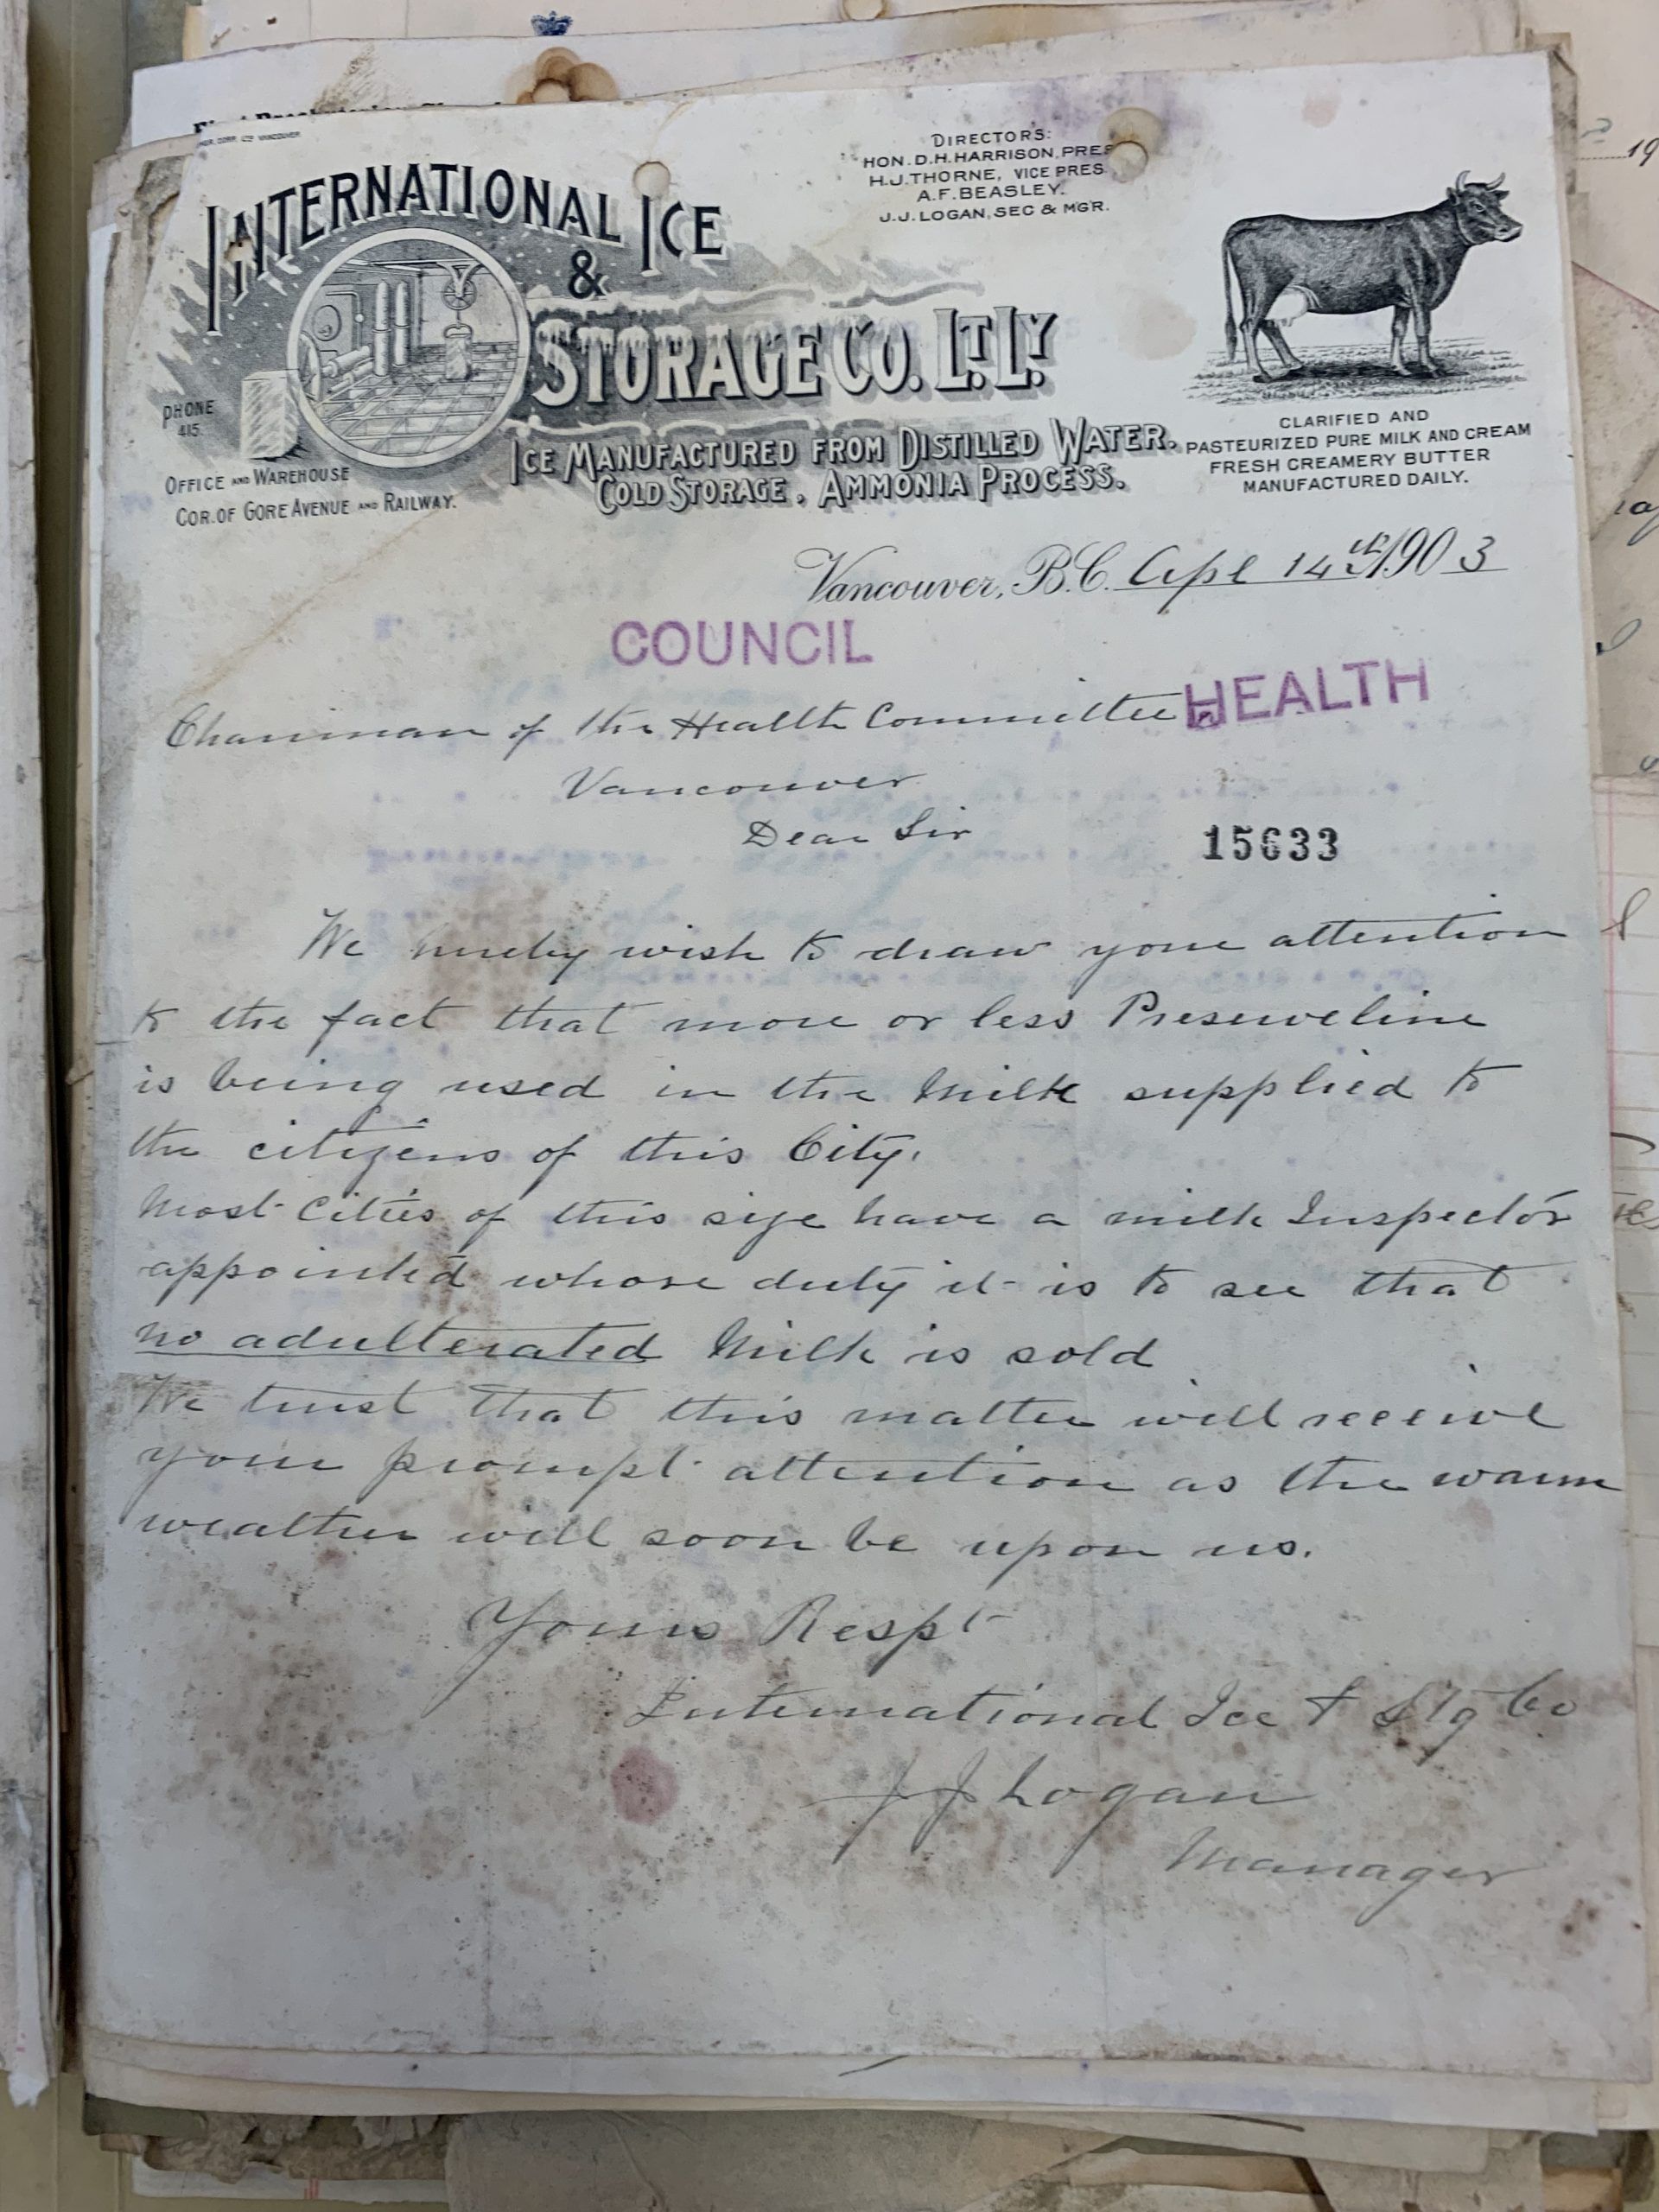 DIRECTORS:
HON. D.H. HARRISON, PRES
H.J. THORNE, VICE PRES.
A.F. BEASLEY.
J.J. LOGAN, SEC & MGR.
INTERNATIONAL ICE
&
STORAGE CO. LT. LY.
PHONE
415
ICE MANUFACTURED FROM DISTILLED WATER.
COLD STORAGE, AMMONIA PROCESS.
OFFICE AND WAREHOUSE
COR. OF GORE AVENUE AND RAILWAY.
CLARIFIED AND
PASTEURIZED PURE MILK AND CREAM
FRESH CREAMERY BUTTER
MANUFACTURED DAILY.
Vancouver, B.C. Apl 14th 1903
COUNCIL
HEALTH
Chairman of the Health Committee
Vancouver
Dear Sir
15633
We hereby wish to draw your attention
to the fact that more or less Preserveline
is being used in the Milk supplied to
the citizens of this City.
Most Cities of this size have a milk Inspector
appointed whose duty it is to see that
no adulterated Milk is sold
We trust that this matter will receive
your prompt attention as the warm
weather will soon be upon us.
Yours Respt
International Ice & Stg Co
J J Logan
Manager